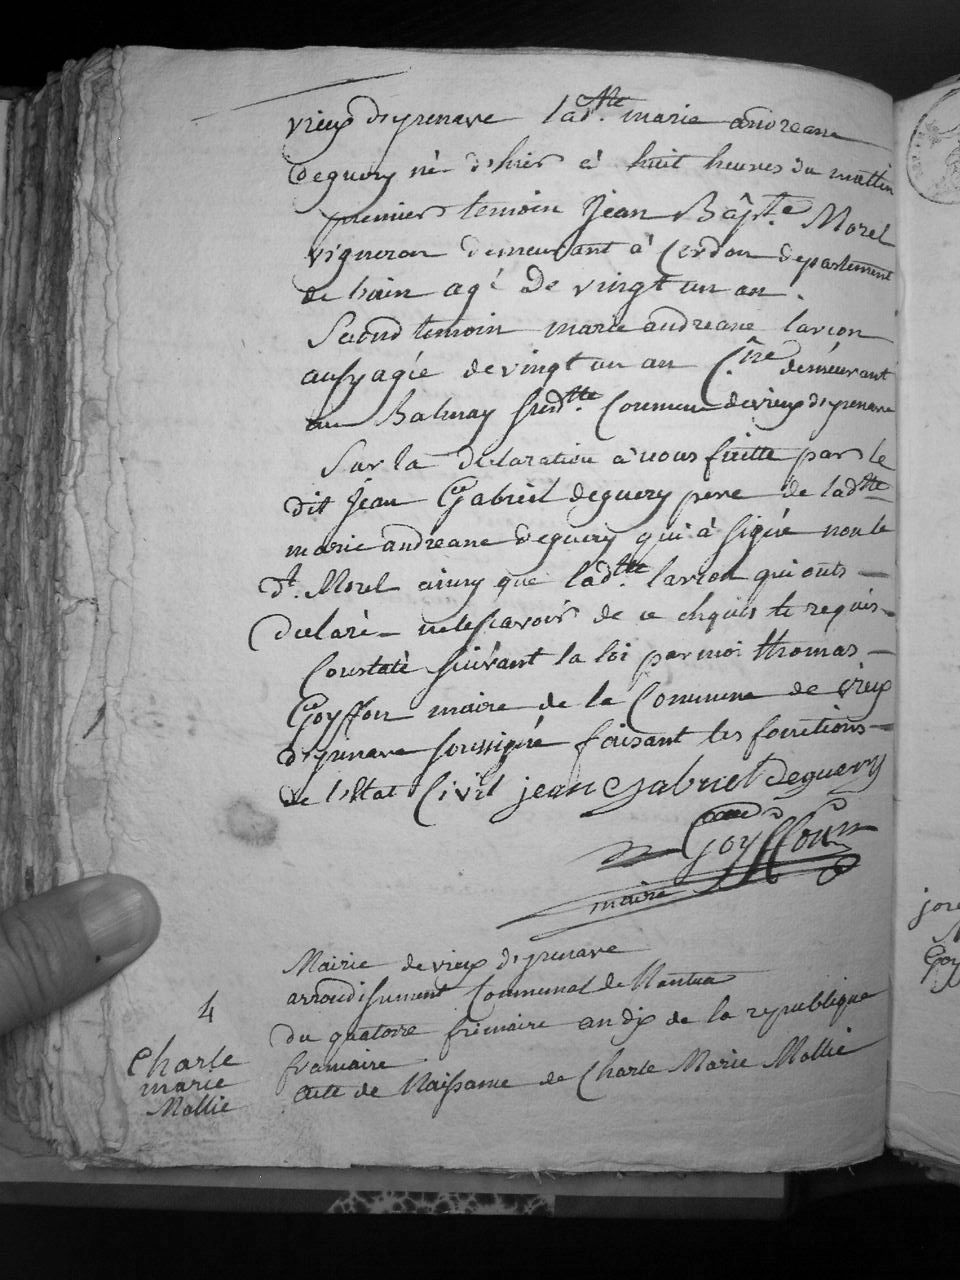 vieux d'izenave lad.tte marie andreane
deguery né d'hier à huit heures du mattin
premier temoin Jean Bapt.te Morel
vigneron demeurant à Cerdon departement
de l'ain agé De vingt un an.
Second temoin marie andreane larion
aussy agée de vingt un an demeurant
au Balmay susd.tte Commune de vieux d'izenave
Sur la declaration à nous faitte par le
dit Jean Gabriel deguery pere de ladtte
marie andreane deguery qui à signé non le
dt. Morel ainsy que lad.tte larion qui onts
declaré ne le scavoir de ce enquis te requis
Constaté suivant la loi par moi thomas
Goyffon maire de la Commune de vieux
d'izenave soussigné faisant les fonctions
de l'Etat Civil jean gabriel deguery
Goyffon
maire
Mairie de vieux d'izenave
arrondissement Communal de Nantua
du quatorze frimaire an dix de la republique
francaise
acte de Naissance de Charle Marie Mollie
4
Charle
marie
Mollie